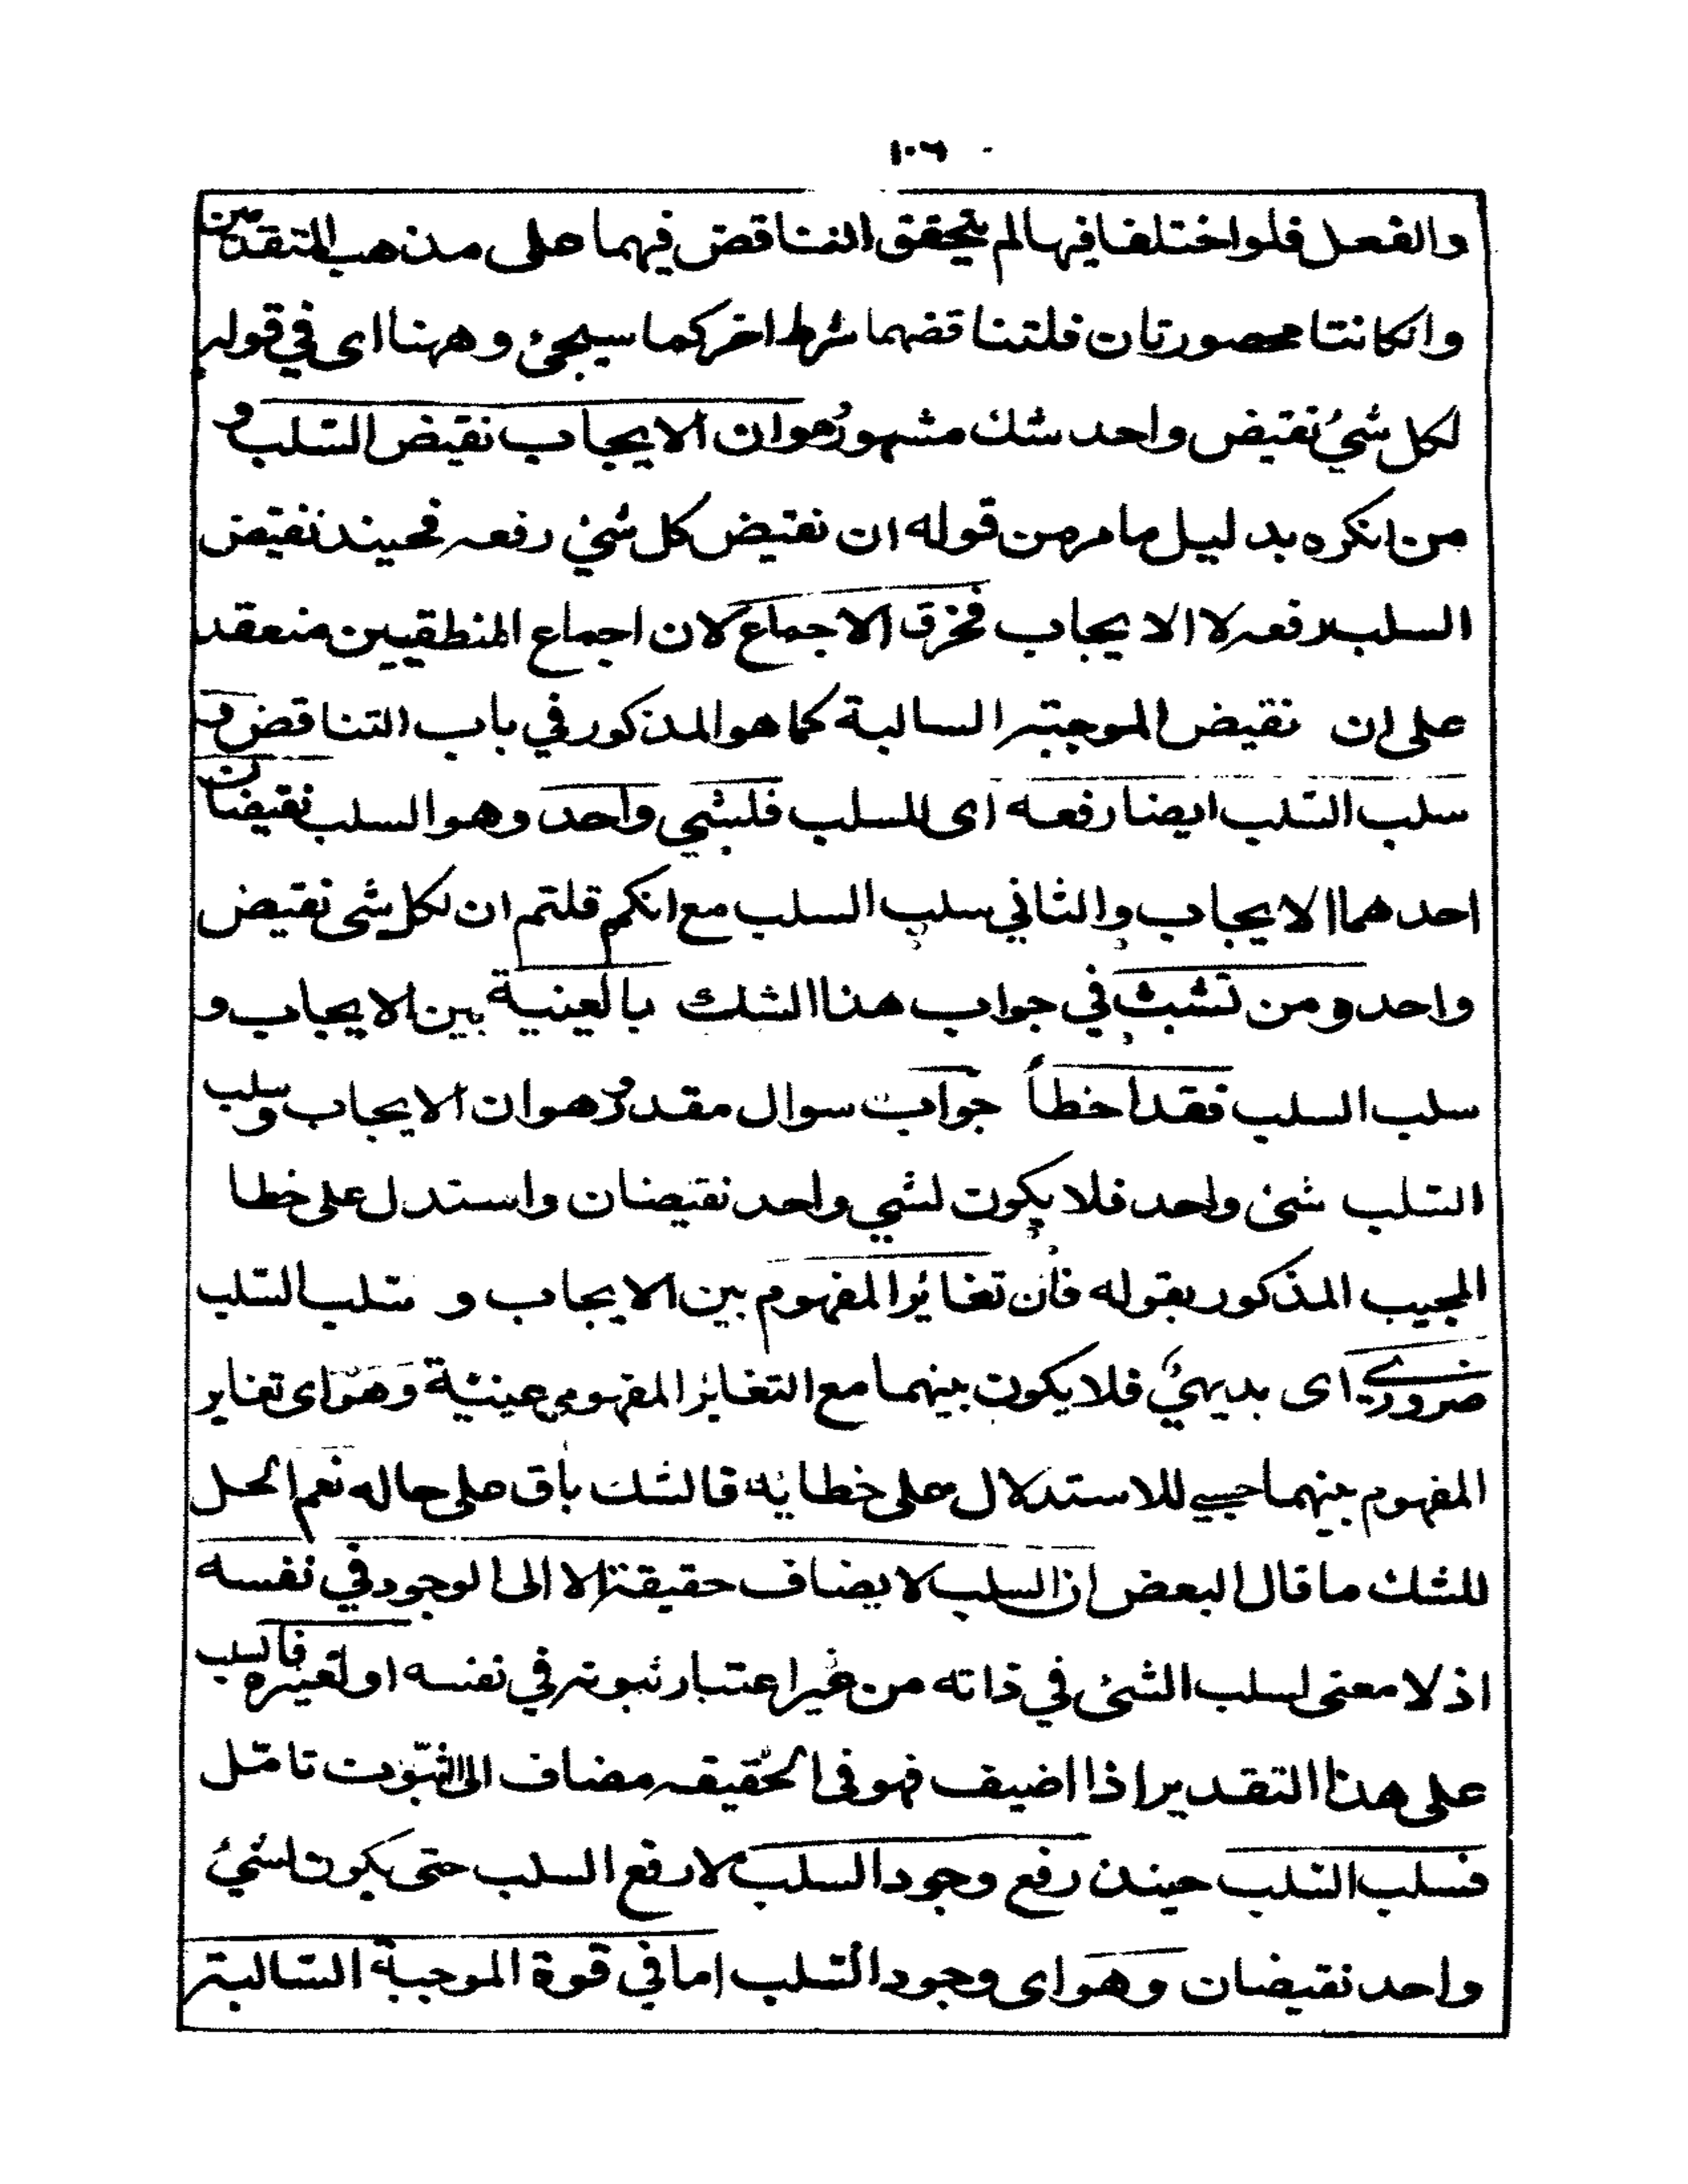 ١٠٦
والفعل فلو اختلفا فيها لم يتحقق التناقض فيهما على مذهب المتقدمين
وانكانتا محصورتان فلتناقضهما شرط اخر كما سيجئ وههنا اى في قوله
لكل شئ نقيض واحد شك مشهور وهو ان الايجاب نقيض السلب و
من انكره بدليل ما مر من قوله ان نقيض كل شئ رفعه فحينئذ نقيض
السلب رفعه لا الايجاب فخرق الاجماع لان اجماع المنطقيين منعقد
على ان نقيض الموجبة السالبة كما هو المذكور في باب التناقض و
سلب السلب ايضا رفعه اى للسلب فلشئ واحد وهو السلب نقيضان
احدهما الايجاب والثاني سلب السلب مع انكم قلتم ان لكل شى نقيض
واحد ومن تشبث في جواب هذا الشك بالعينية بين الايجاب و
سلب السلب فقد اخطأ جواب سوال مقدر وهو ان الايجاب وسلب
السلب شئ واحد فلا يكون لشي واحد نقيضان واستدل على خطا
المجيب المذكور بقوله فان تغائر المفهوم بين الايجاب و سلب السلب
ضرورى اى بديهيٌ فلا يكون بينهما مع التغائر المفهومي عينية وهو اى تغاير
المفهوم بينهما حسبي للاستدلال على خطايه فالشك باق على حاله نعم الحل
للشك ما قال البعض ان السلب لا يضاف حقيقة الا الى الوجود في نفسه
اذ لا معنى لسلب الشئ في ذاته من غير اعتبار ثبوته في نفسه او لغيره فالسلب
على هذا التقدير اذا اضيف فهو فى الحقيقه مضاف الى الثبوت تامّل
فسلب السلب حينئذ رفع وجود السلب لا رفع السلب حتى يكون لشئ
واحد نقيضان وهو اى وجود السلب اما في قوة الموجبة السالبة